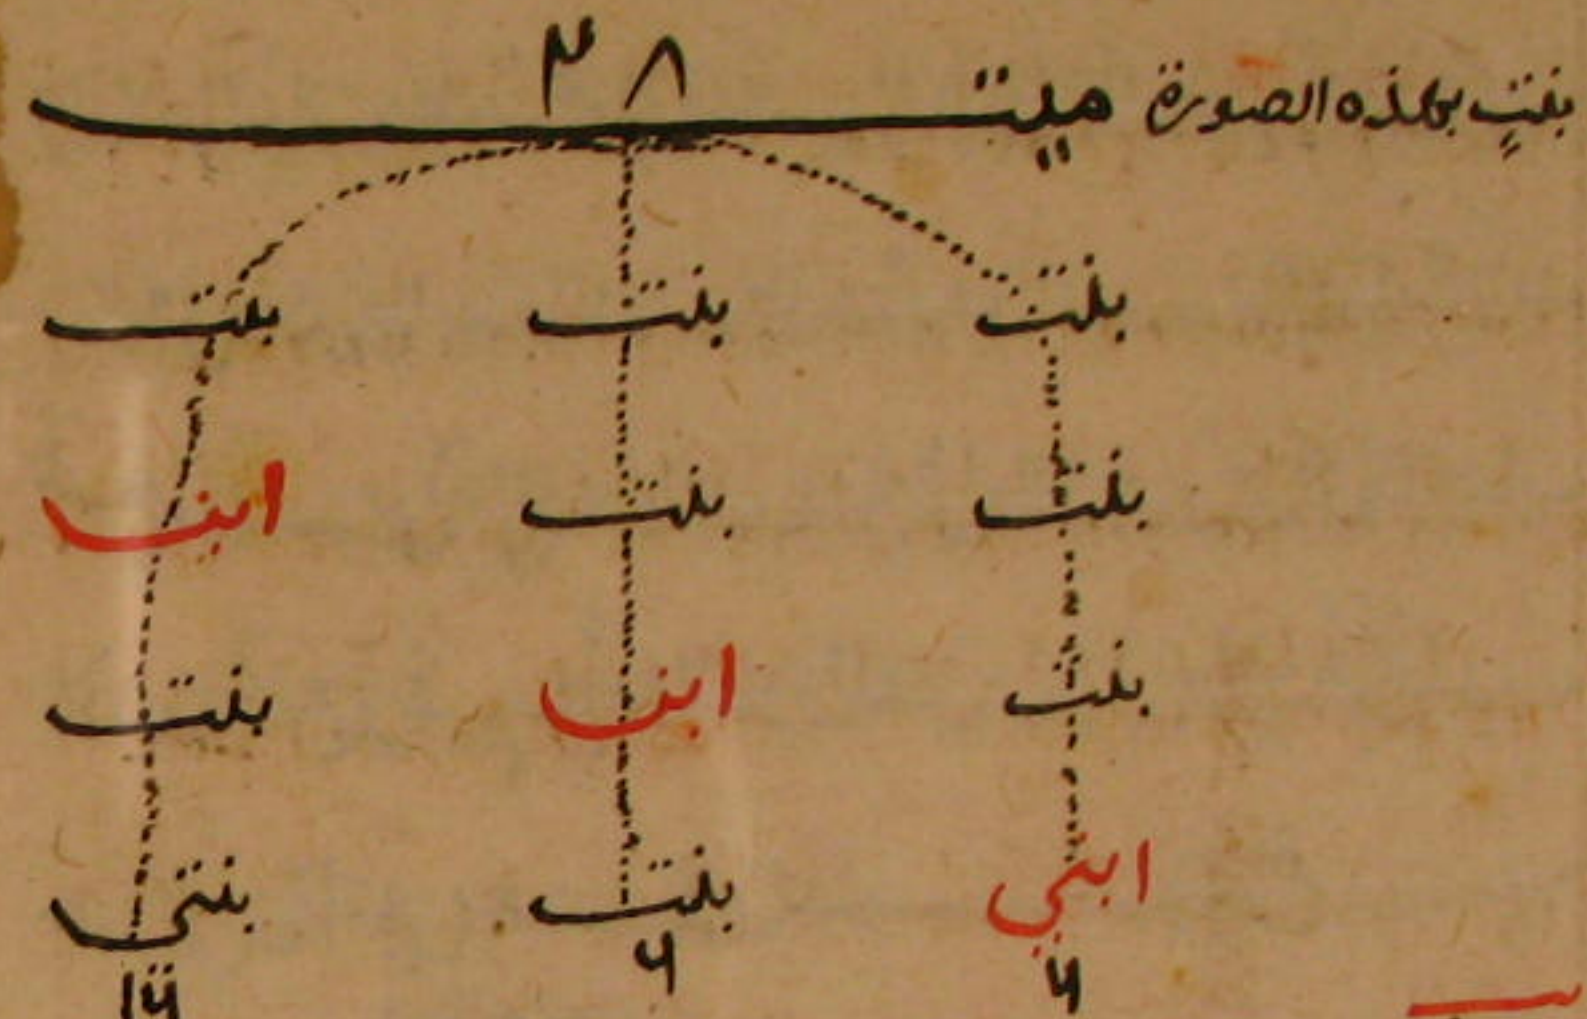 ٢٨
بنتٍ بهذه الصورة ميت
بنت بنت بنت
بنت بنت ابن
بنت ابن بنت
ابني بنت بنتي
٦ ٦ ١٦